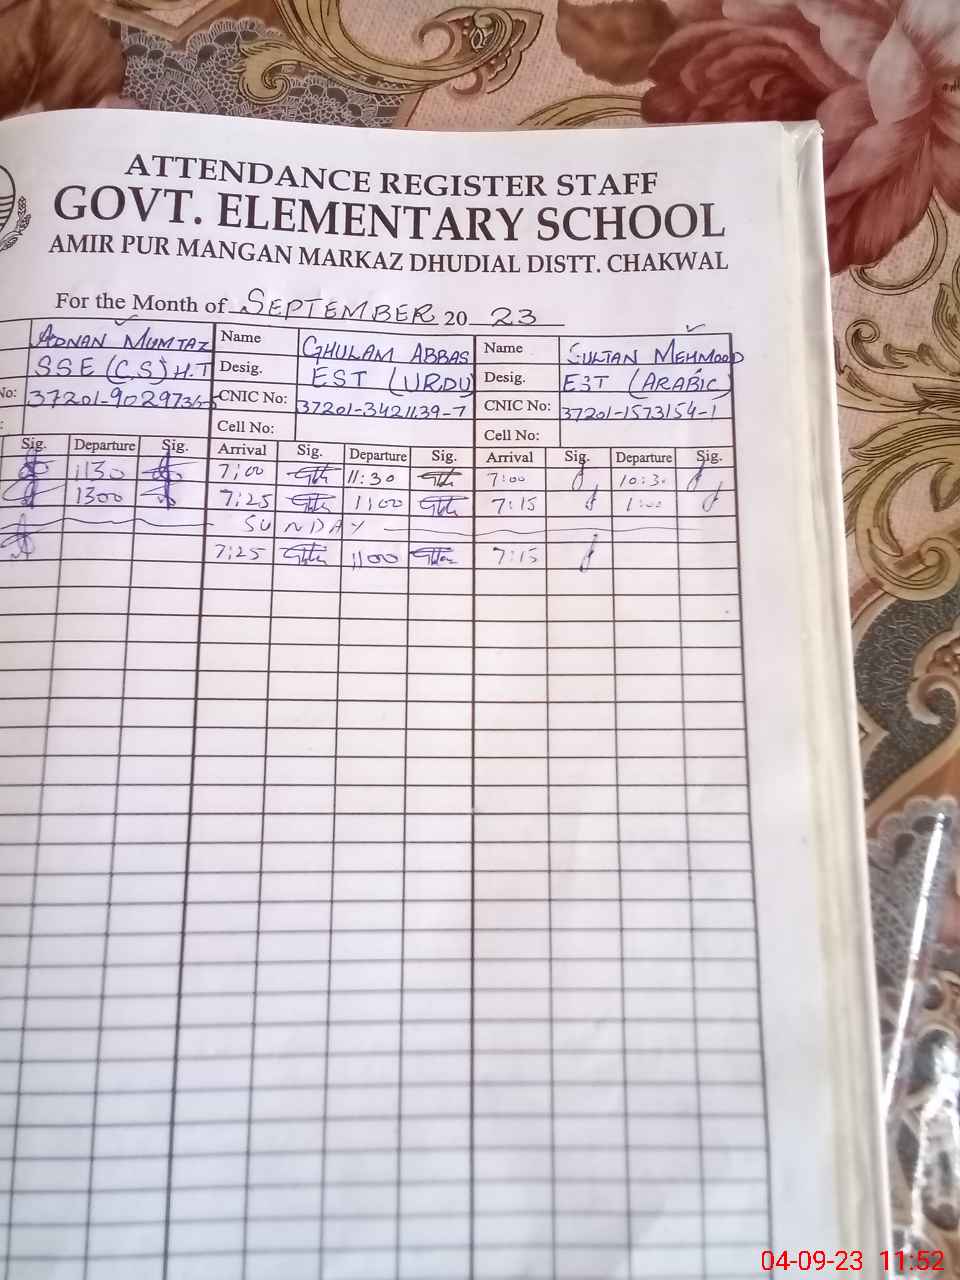 ATTENDANCE REGISTER STAFF
GOVT. ELEMENTARY SCHOOL
AMIR PUR MANGAN MARKAZ DHUDIAL DISTT. CHAKWAL
For the Month of SEPTEMBER 20 23
ADNAN MUMTAZ Name GHULAM ABBAS Name SULTAN MEHMOOD
SSE (C.S) H.T Desig. EST (URDU) Desig. EST (ARABIC)
No: CNIC No: 37201-3421139-7 CNIC No: 37201-1573154-1
Cell No: Cell No:
Sig. Departure Sig. Arrival Sig. Departure Sig. Arrival Sig. Departure Sig.
1130 7:00 11:30 7:00 10:30
1300 7:25 1100 7:15 1:00
SUNDAY
7:25 1100 7:15
04-09-23 11:52